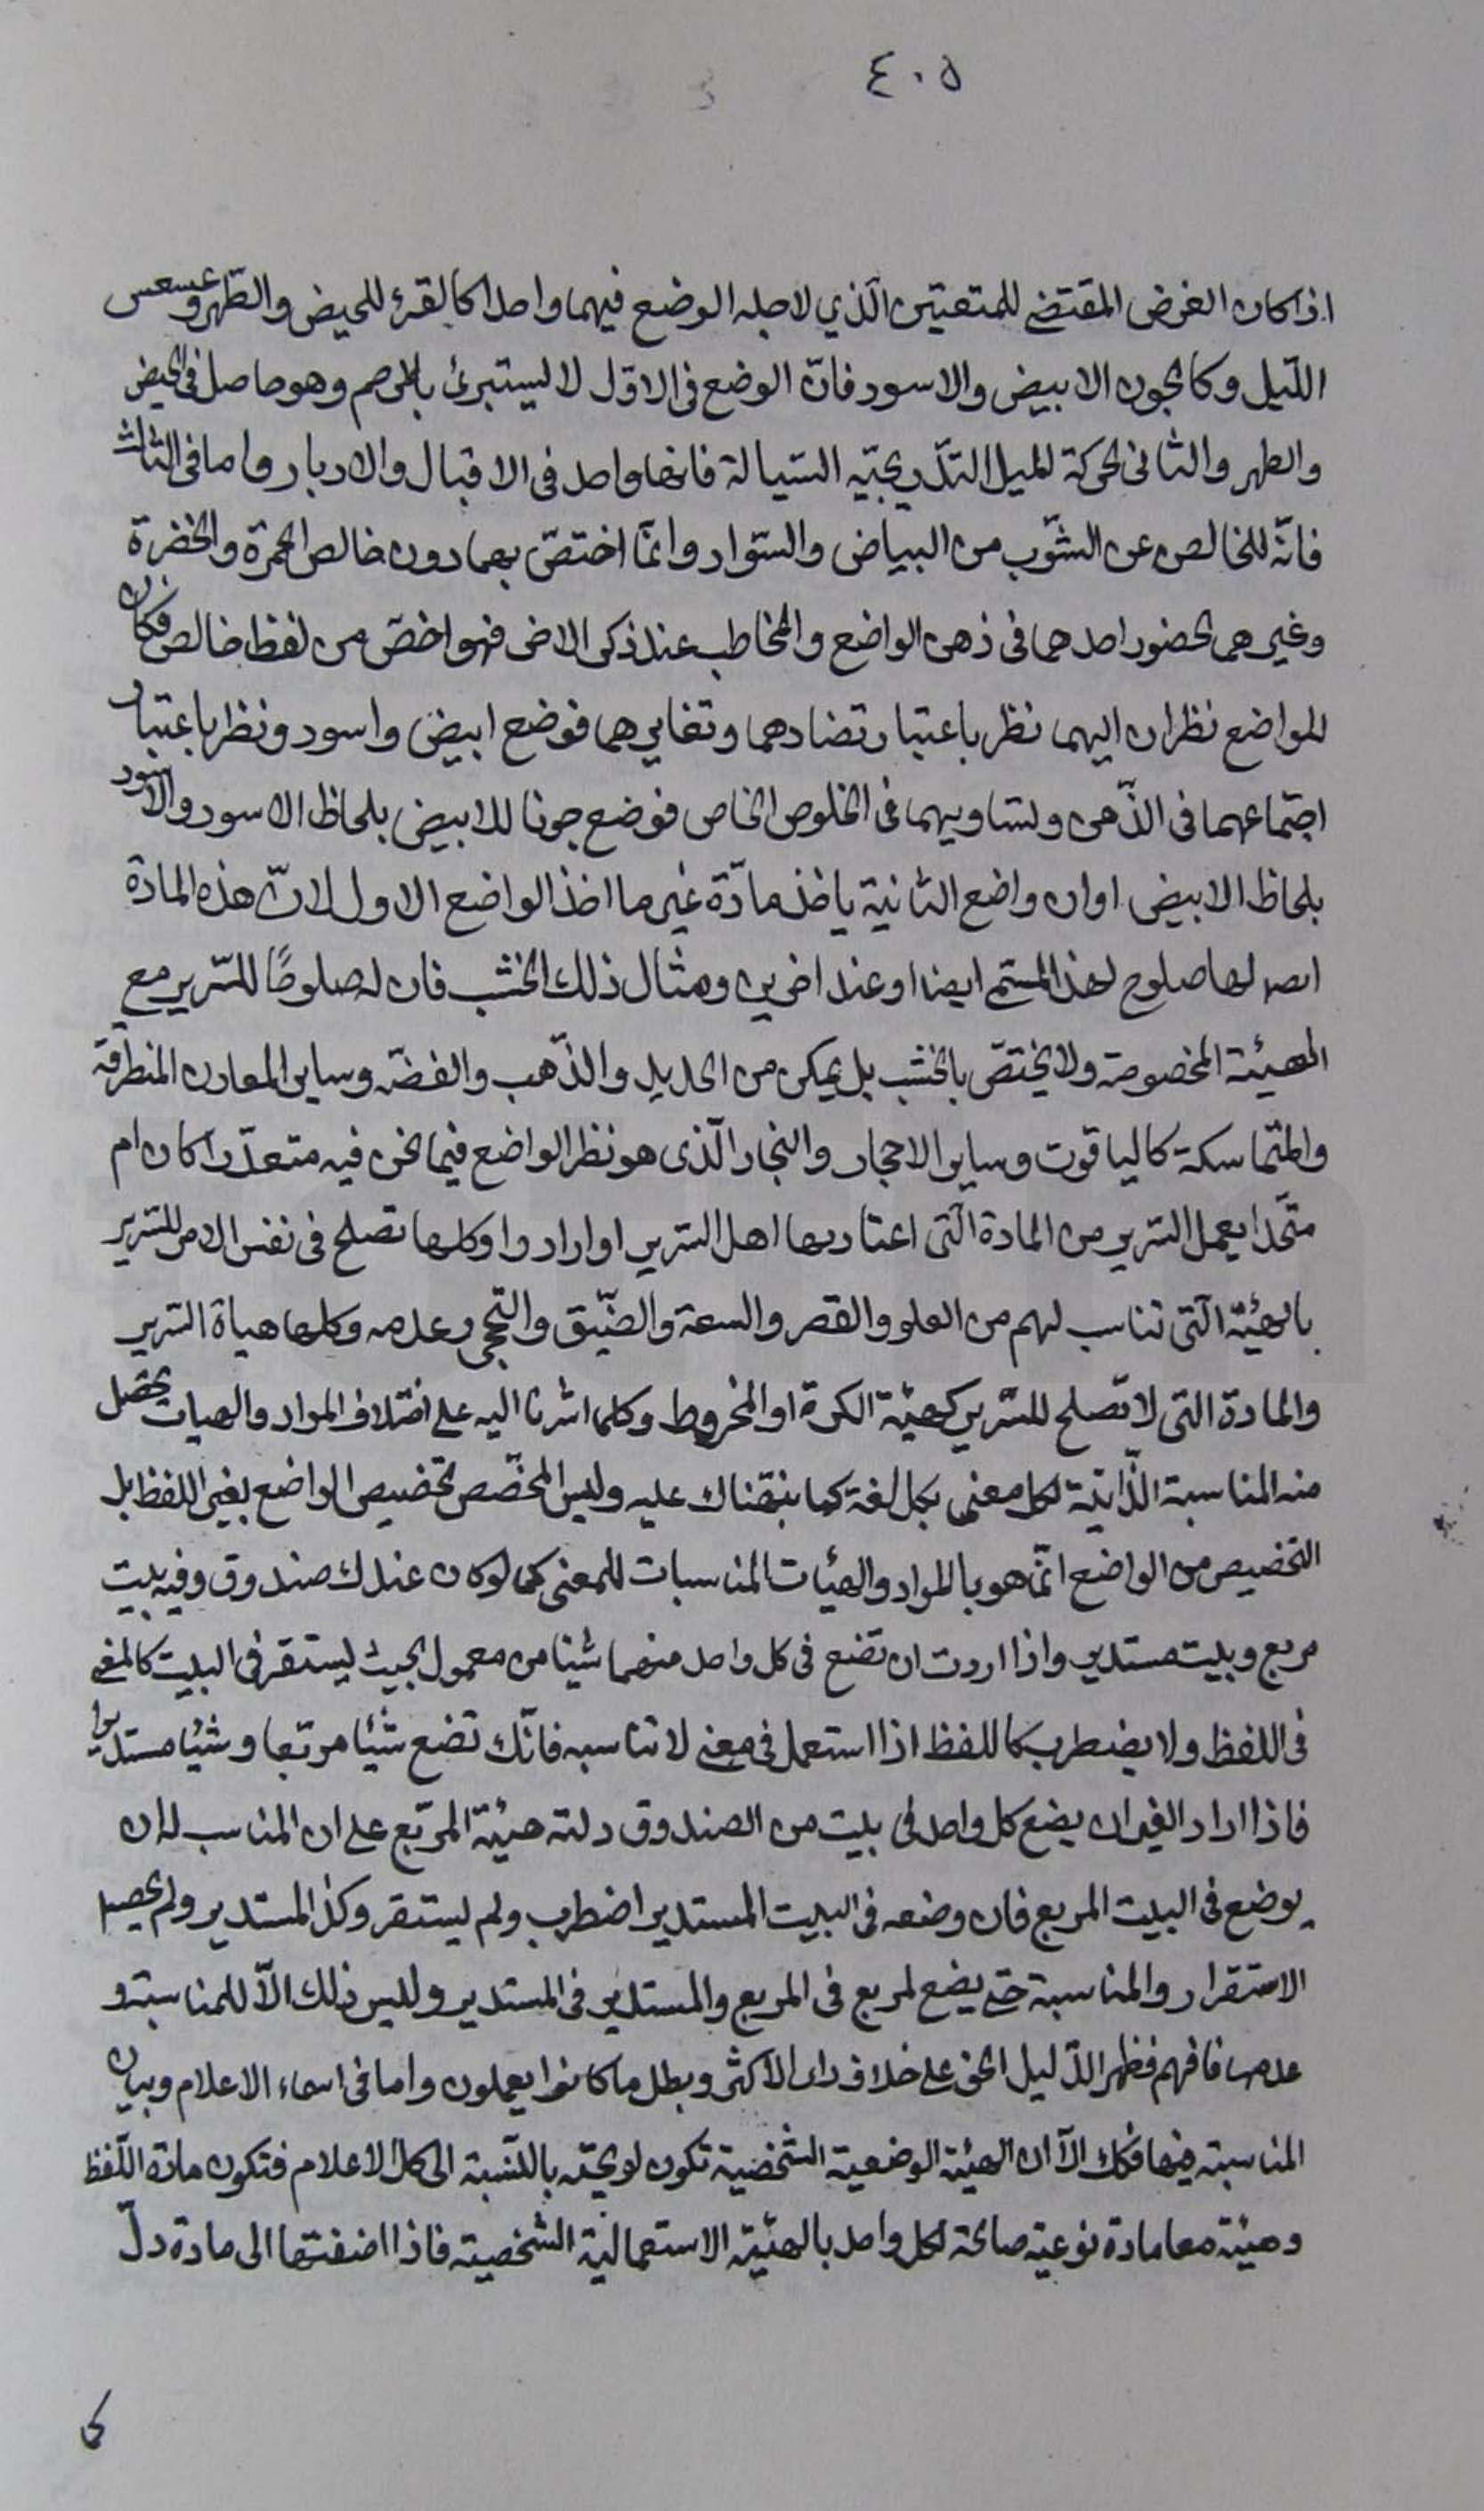 ٤٠٥
اذا كان الغرض المقتضي للمتعينين الّذي لاجله الوضع فيهما واحدا كالقرء للحيض والطّهر وعسعس
اللّيل وكالجون الابيض والاسود فانّ الوضع فى الاوّل لا ليستبرئ بالرحم وهو حاصل فى الحيض
والطهر والثانى لحركة الميل التدّريجيّه السّيالة فانها واحد فى الاقبال والادبار واما فى الثالث
فانّه للخالص عن الشّوب من البياض والسّواد وانّما اختصّ بهما دون خالص الحمرة والخضرة
وغيرهما لحضور احدهما فى ذهن الواضع والمخاطب عند ذكر الاخر فهو اخصّ من لفظ خالص فكان
للواضع نظران اليهما نظر باعتبار تضادهما وتغايرهما فوضع ابيض واسود ونظر باعتبار
اجتماعهما فى الذّهن ولتساويهما فى الخلوص الخاص فوضع جونا للابيض بلحاظ الاسود والاسود
بلحاظ الابيض اوان واضع الثانية ياخذ مادّة غير ما اخذ الواضع الاول لانّ هذه المادة
لها صلوح لهذا ايضا او عند اخرين ومثال ذلك الخشب فان له صلوحًا للسّرير مع
الهيئة المخصوصة ولا يختصّ بالخشب بل يمكن من الحديد والذّهب والفضّه وساير المعادن المنطرقة
والمتماسكة كالياقوت وساير الاحجار والنجار الّذى هو نظر الواضع فيما نحن فيه متعدّدا كان ام
متّحدا يعمل السّرير من المادة الّتى اعتاد بها اهل السّرير او ارادوا وكلها تصلح فى نفس الامر للسّرير
بالهيئة الّتى تناسب لهم من العلو والقصر والسعة والضّيق والتحجر وعدمه وكلها هياة السّرير
والمادة التى لا تصلح للسّرير كهيئة الكرة او المخروط وكلما اشرنا اليه على اختلاف المواد والهيات يحصل
منه المناسبة الذّاتيّة لكل معنى بكل لغة كما نبّهناك عليه وليس المخصّص تخصيص الواضع بغير اللفظ بل
التخصيص من الواضع انّما هو بالمواد والهيئات المناسبات للمعنى كما لو كان عندك صندوق وفيه بيت
مربع وبيت مستدير واذا اردت ان تضع فى كل واحد منهما شيئا من معمول بحيث ليستقر فى البيت كالمعنى
فى اللفظ ولا يضطرب كاللفظ اذا استعمل فى معنى لا تناسبه فانّك تضع شيئا مربّعا وشيئا مستديرا
فاذا اراد الغير ان يضع كل واحد فى بيت من الصندوق دلته هيئة المربّع على ان المناسب له ان
يوضع فى البيت المربع فان وضعه فى البيت المستدير اضطرب ولم يستقر وكذا المستدير ولم يحصل
الاستقرار والمناسبة حتى يضع المربع فى المربع والمستدير فى المستدير وليس ذلك الاّ للمناسبة و
عدمها فافهم فظهر الدّليل الحق على خلاف راى الاكثر وبطل ما كانوا يعملون واما فى اسماء الاعلام وبيان
المناسبة فيها فكك الاّ ان الهيئة الوضعية الشّخصية تكون بالنّسبة الى كل الاعلام فتكون مادة اللّفظ
وهيئته معا مادة نوعية صالحة لكل واحد بالهيئة الاستعمالية الشّخصية فاذا اضفتها الى مادة دلّ